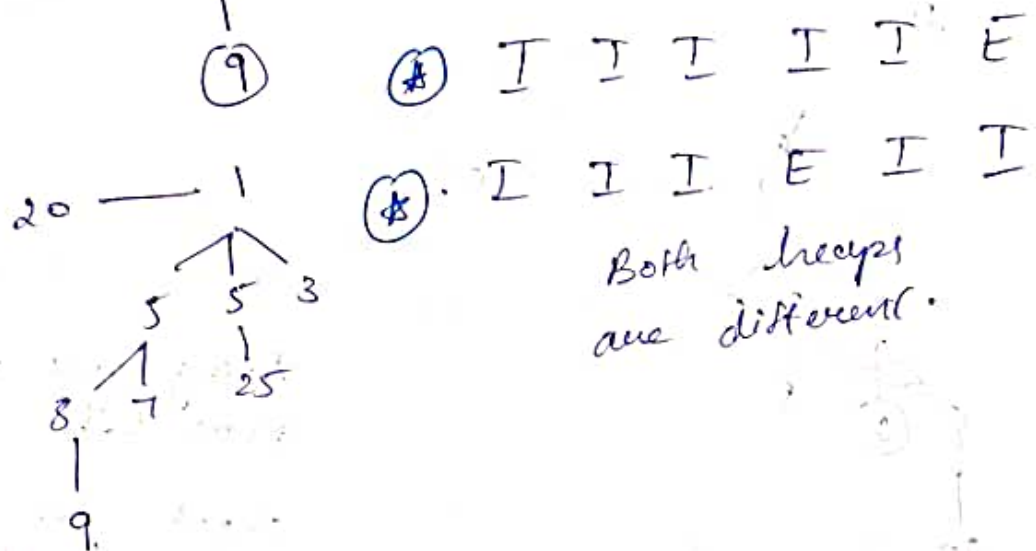 9
☆ I I I I I E
20 1
☆ I I I E I I
5 5 3
Both heaps
are different.
8 7 25
9